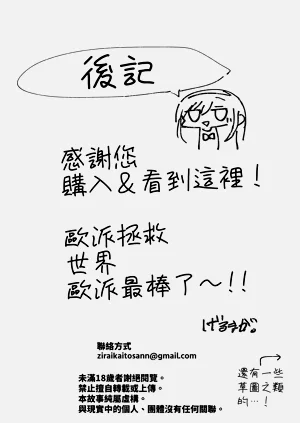 後記
感謝您
購入&看到這裡!
歐派拯救
世界
歐派最棒了~!!
聯絡方式
ziraikaitosann@gmail.com
還有一些
草圖之類
的…!
未滿18歲者謝絕閱覽。
禁止擅自轉載或上傳。
本故事純屬虛構。
與現實中的個人、團體沒有任何關聯。